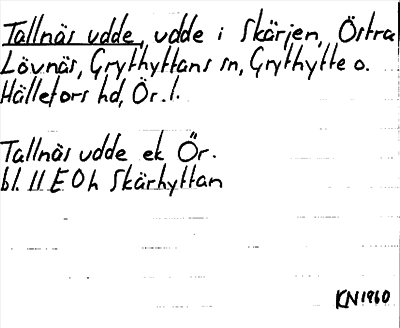 Tallnäs udde, udde i Skärjen, Östra
Lövnäs, Grythyttans sn, Grythytte o.
Hällefors hd, Ör. l.
Tallnäs udde ek Ör.
bl. 11 E 0 h Skärhyttan
KN 1960